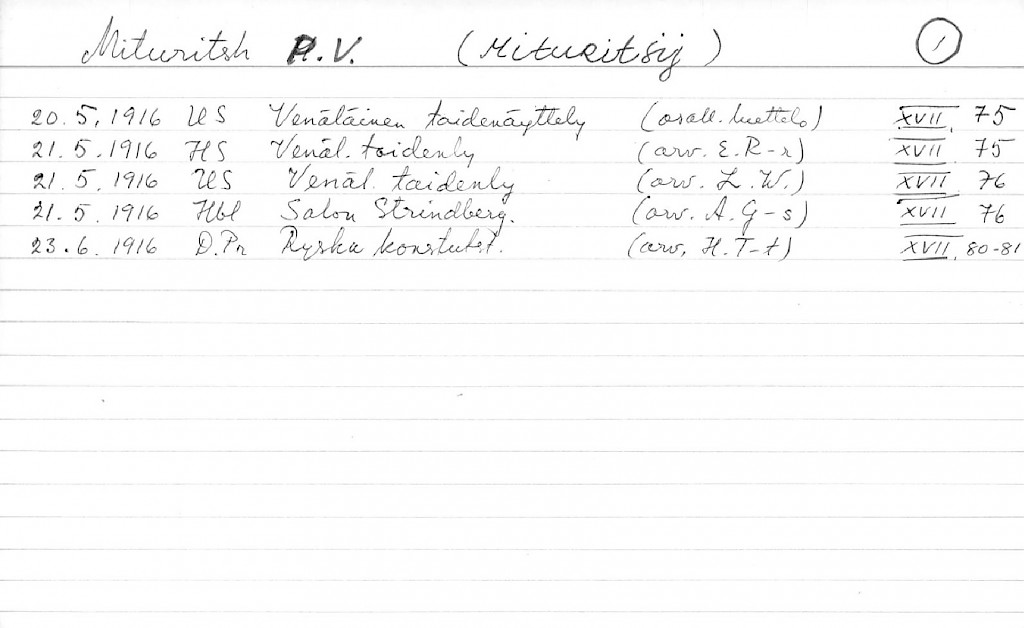 Mituritsh P.V. (Mituritsij) 1
20.5.1916 US Venäläinen taidenäyttely (osall. luettelo) XVII. 75
21.5.1916 HS Venäl. taidenly (arv. E. R-r) XVII 75
21.5.1916 US Venäl. taidenly (arv. L. W.) XVII 76
21.5.1916 Hbl Salon Strindberg. (arv. A. G-s) XVII 76
23.6.1916 D.Pr Ryska konstutst. (arv. H. T-t) XVII. 80-81